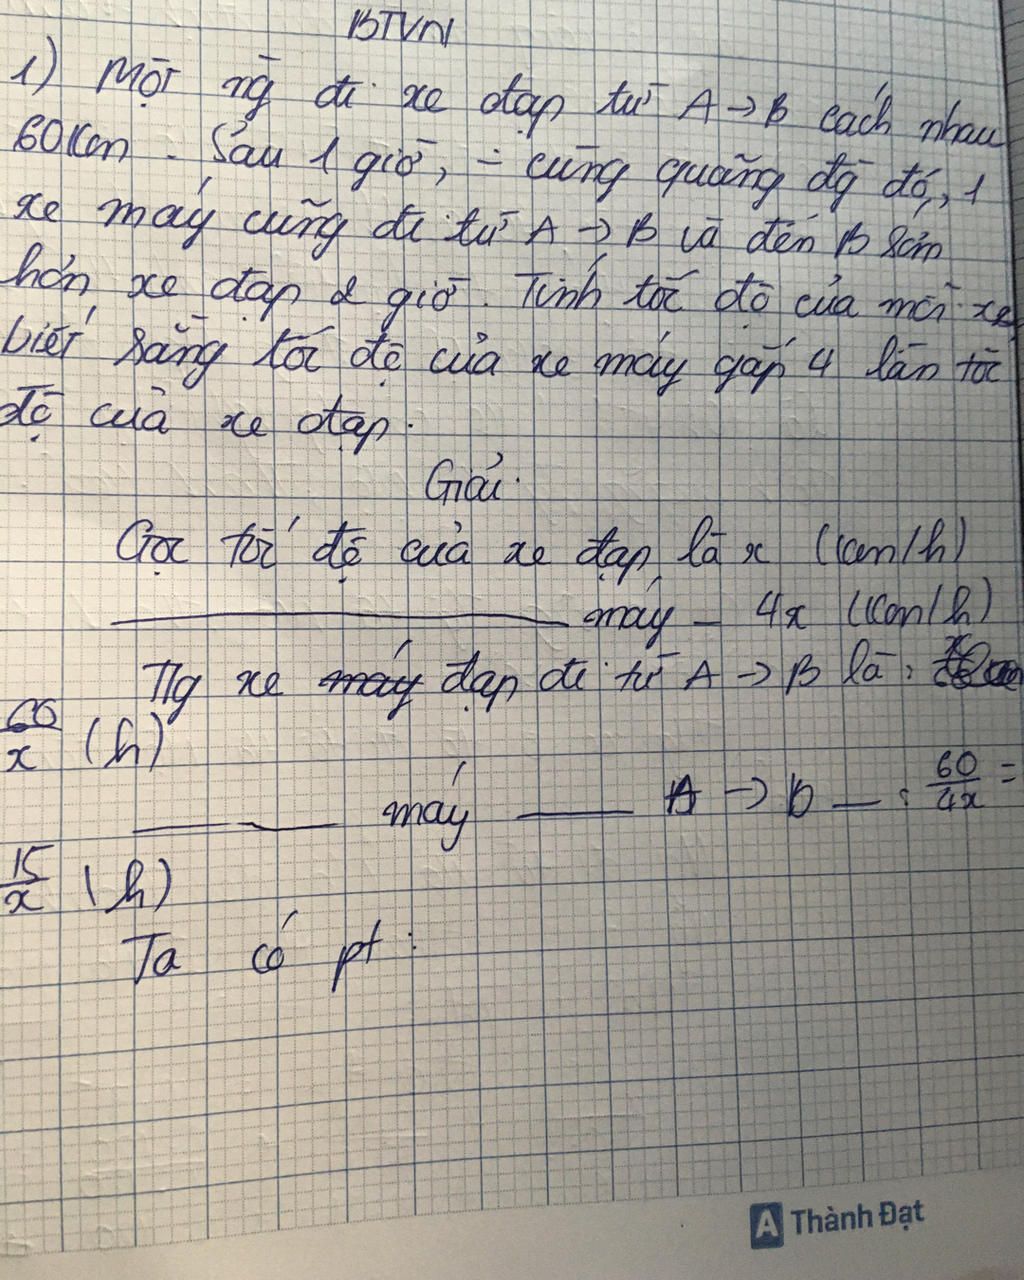 BTVN
1) Một ng̃ đi xe đạp từ A → B cách nhau
60km. Sau 1 giờ, - cũng quãng đg̃ đó, 1
xe máy cũng đi từ A → B và đến B sớm
hơn xe đạp 2 giờ. Tính tốc độ của mỗi xe,
biết rằng tốc độ của xe máy gấp 4 lần tốc
độ của xe đạp.
Giải
Gọi tốc độ của xe đạp là x (km/h)
———————— máy – 4x (km/h)
Tg xe máy đạp đi từ A → B là :
60/x (h)
———— máy —— A → B — : 60/4x =
15/x (h)
Ta có pt :
A Thành Đạt